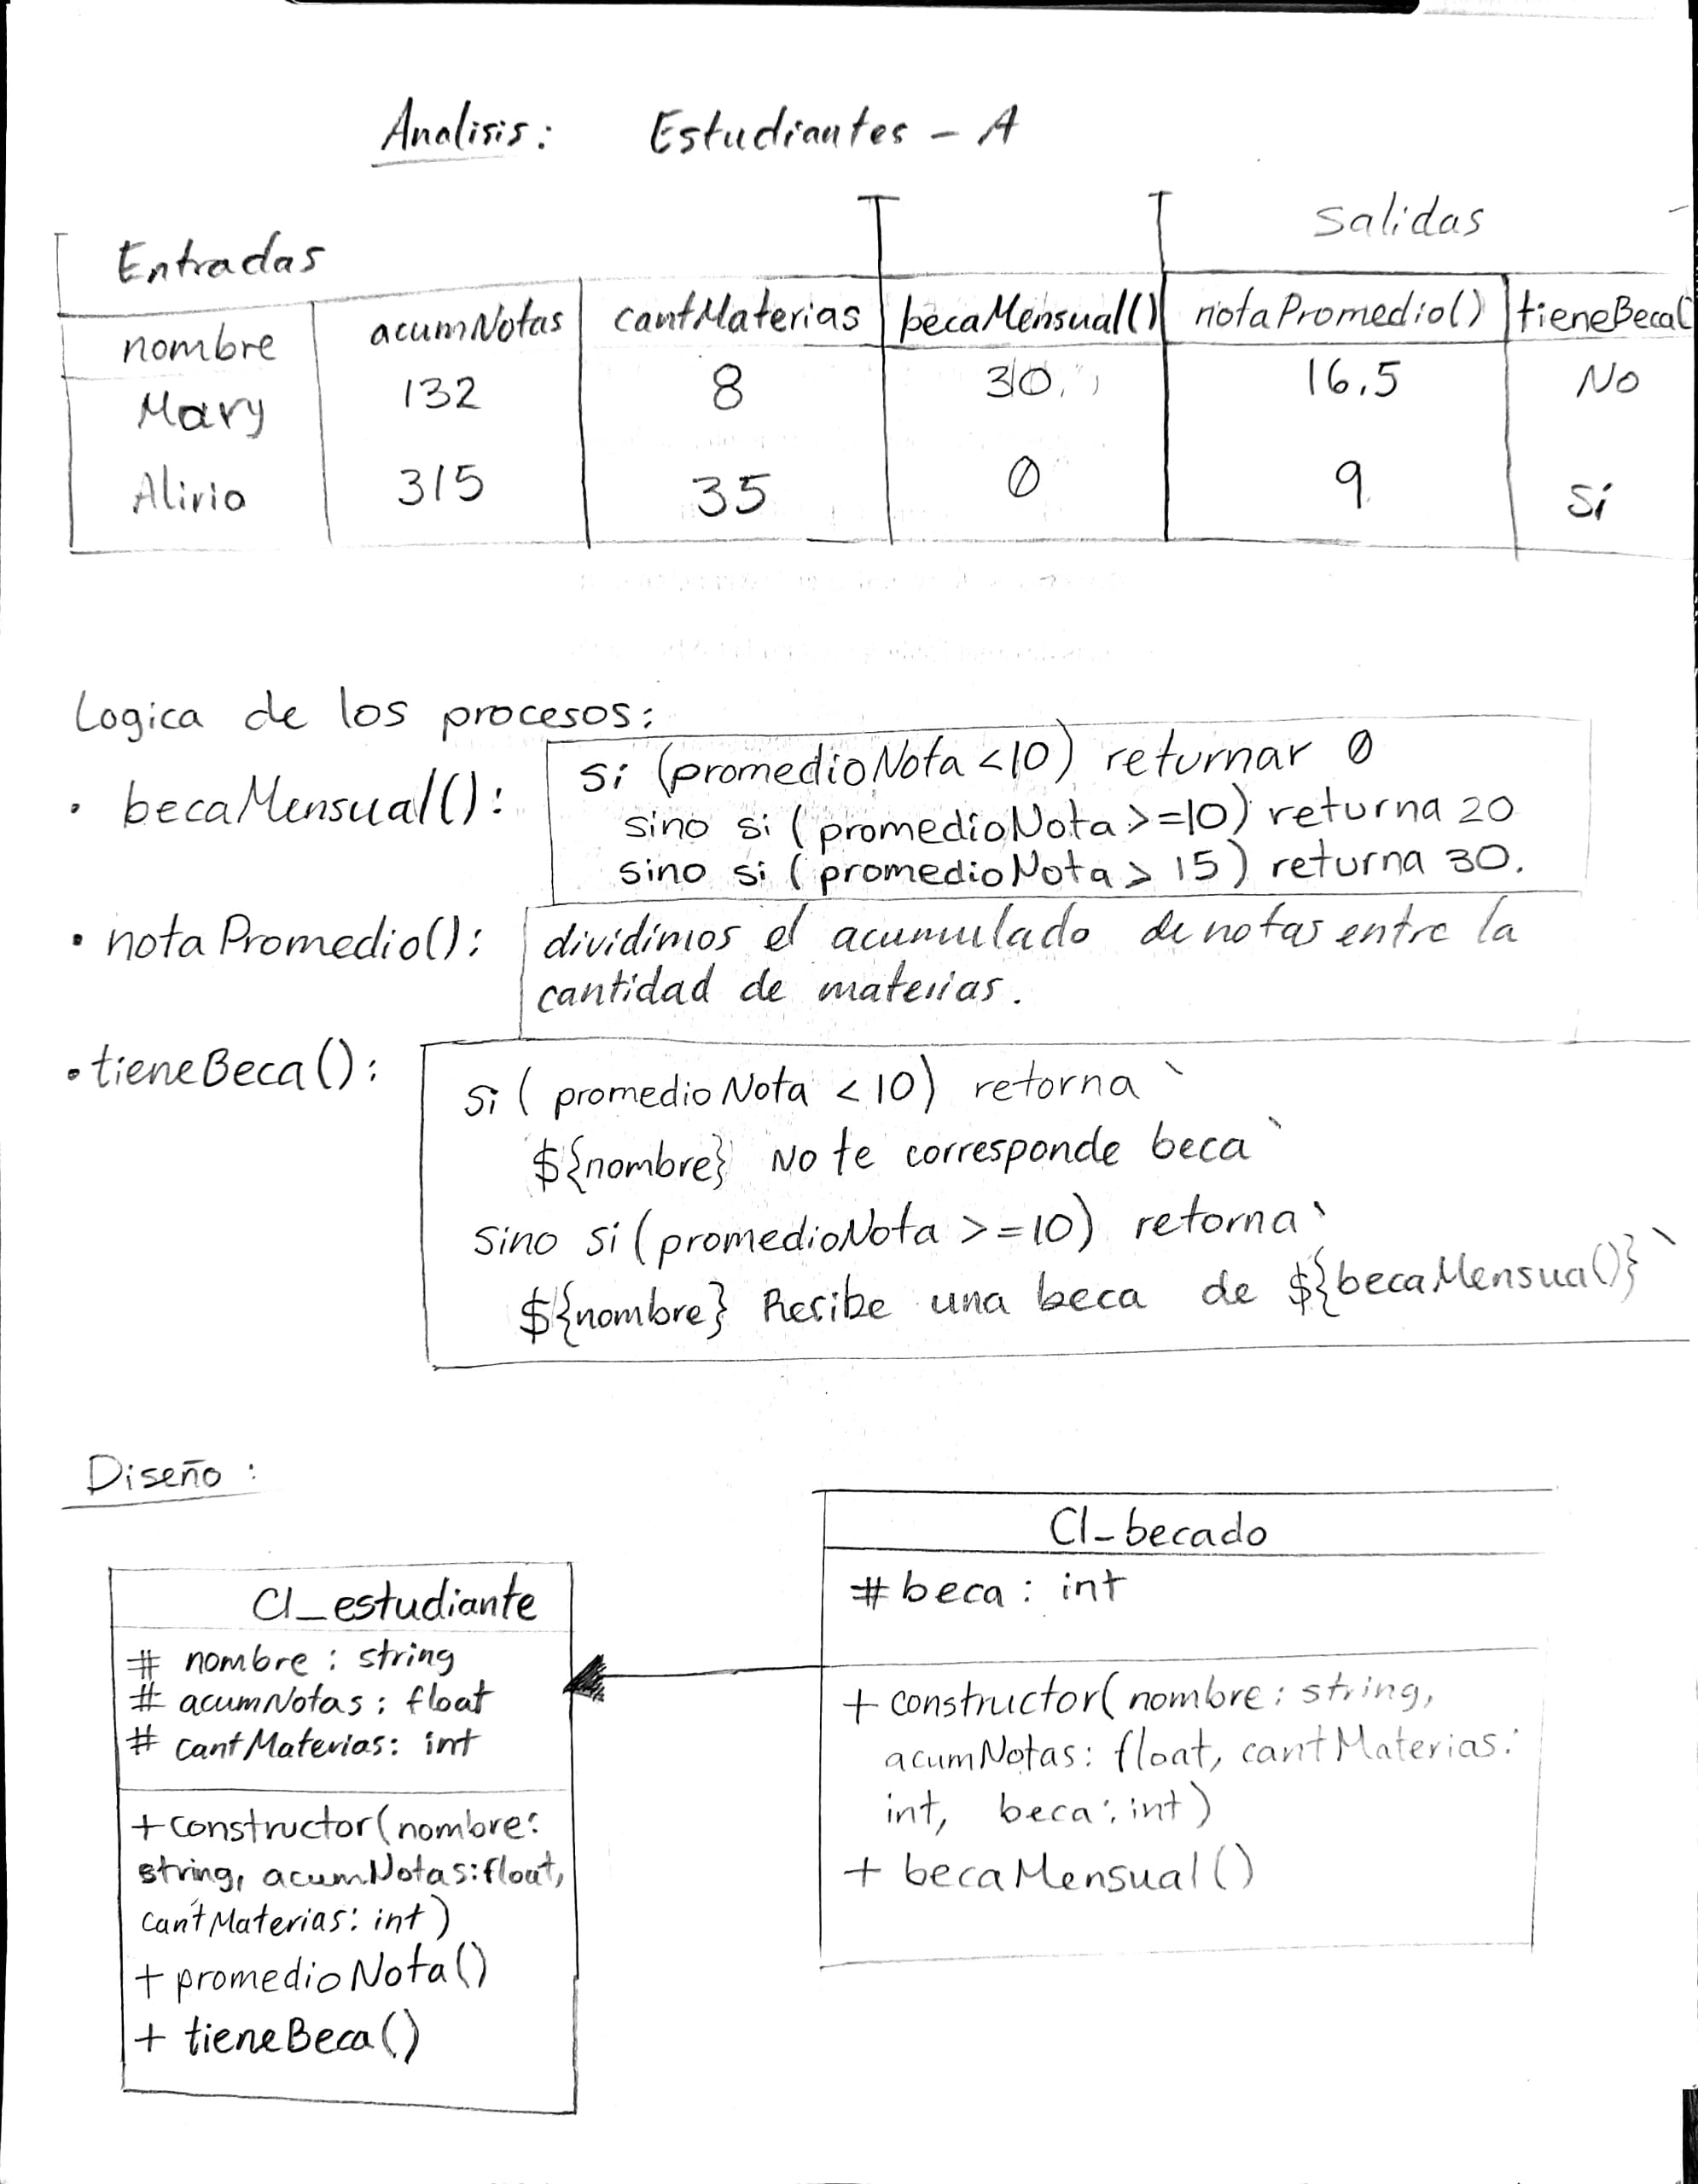 Analisis: Estudiantes - A
Entradas Salidas
nombre acumNotas cantMaterias becaMensual() notaPromedio() tieneBeca(
Mary 132 8 30 16.5 No
Alirio 315 35 0 9 Si
Logica de los procesos:
• becaMensual():
si (promedioNota <10) returnar 0
sino si (promedioNota >=10) returna 20
sino si (promedioNota > 15) returna 30.
• notaPromedio():
dividimos el acumulado de notas entre la
cantidad de materias.
• tieneBeca():
si ( promedioNota <10) retorna `
${nombre} No te corresponde beca`
sino si (promedioNota >=10) retorna `
${nombre} Recibe una beca de ${becaMensua()}`
Diseño :
Cl_estudiante
# nombre : string
# acumNotas : float
# cantMaterias: int
+constructor(nombre:
string, acumNotas:float,
cantMaterias: int)
+ promedioNota()
+ tieneBeca()
Cl_becado
# beca : int
+ constructor(nombre: string,
acumNotas: float, cantMaterias:
int, beca: int)
+ becaMensual()